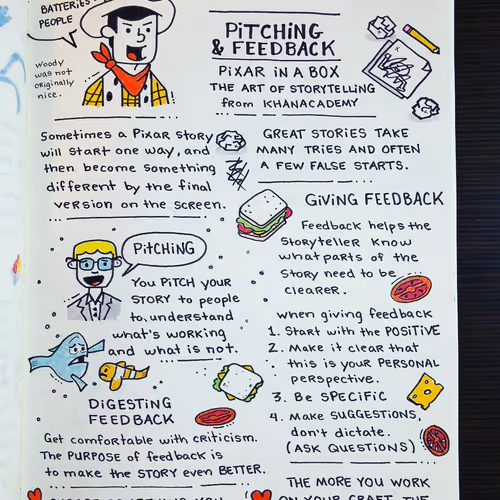 BATTERIES
PEOPLE
Woody
was not
originally
nice.
PiTCHiNG
& FEEDBACK
PiXAR iN A BOX
THE ART OF STORYTELLING
from KHANACADEMY
Sometimes a Pixar story
will start one way, and
then become something
different by the final
version on the screen.
GREAT STORIES TAKE
MANY TRIES AND OFTEN
A FEW FALSE STARTS.
PiTCHiNG
You PiTCH your
STORY to people
to understand
what's working
and what is not.
GiViNG FEEDBACK
Feedback helps the
Storyteller know
what parts of the
Story need to be
cLEARER.
when giving feedback
1. Start with the POSiTiVE
2. Make it clear that
this is your PERSONAL
perspective.
3. Be SPECiFiC
4. Make SUGGESTIONS,
don't dictate.
(ASK QUESTIONS)
DiGESTiNG
FEEDBACK
Get comfortable with criticism.
The PURPOSE of feedback is
to make the STORY even BETTER.
THE MORE YOU WORK